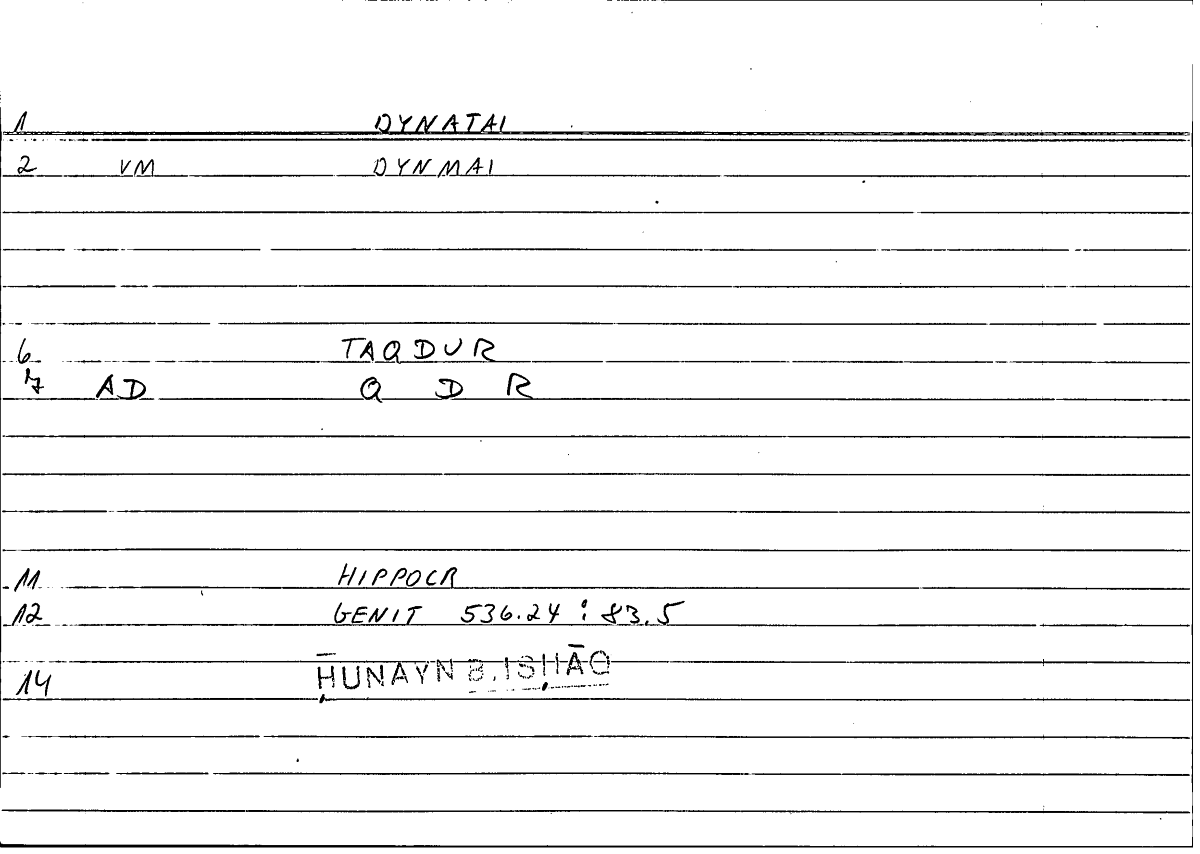 1 DYNATAI
2 VM DYNMAI
6 TAQDUR
7 AD Q D R
11 HIPPOCR
12 GENIT 536.24 : 83.5
14 ḤUNAYN B. ISḤĀQ